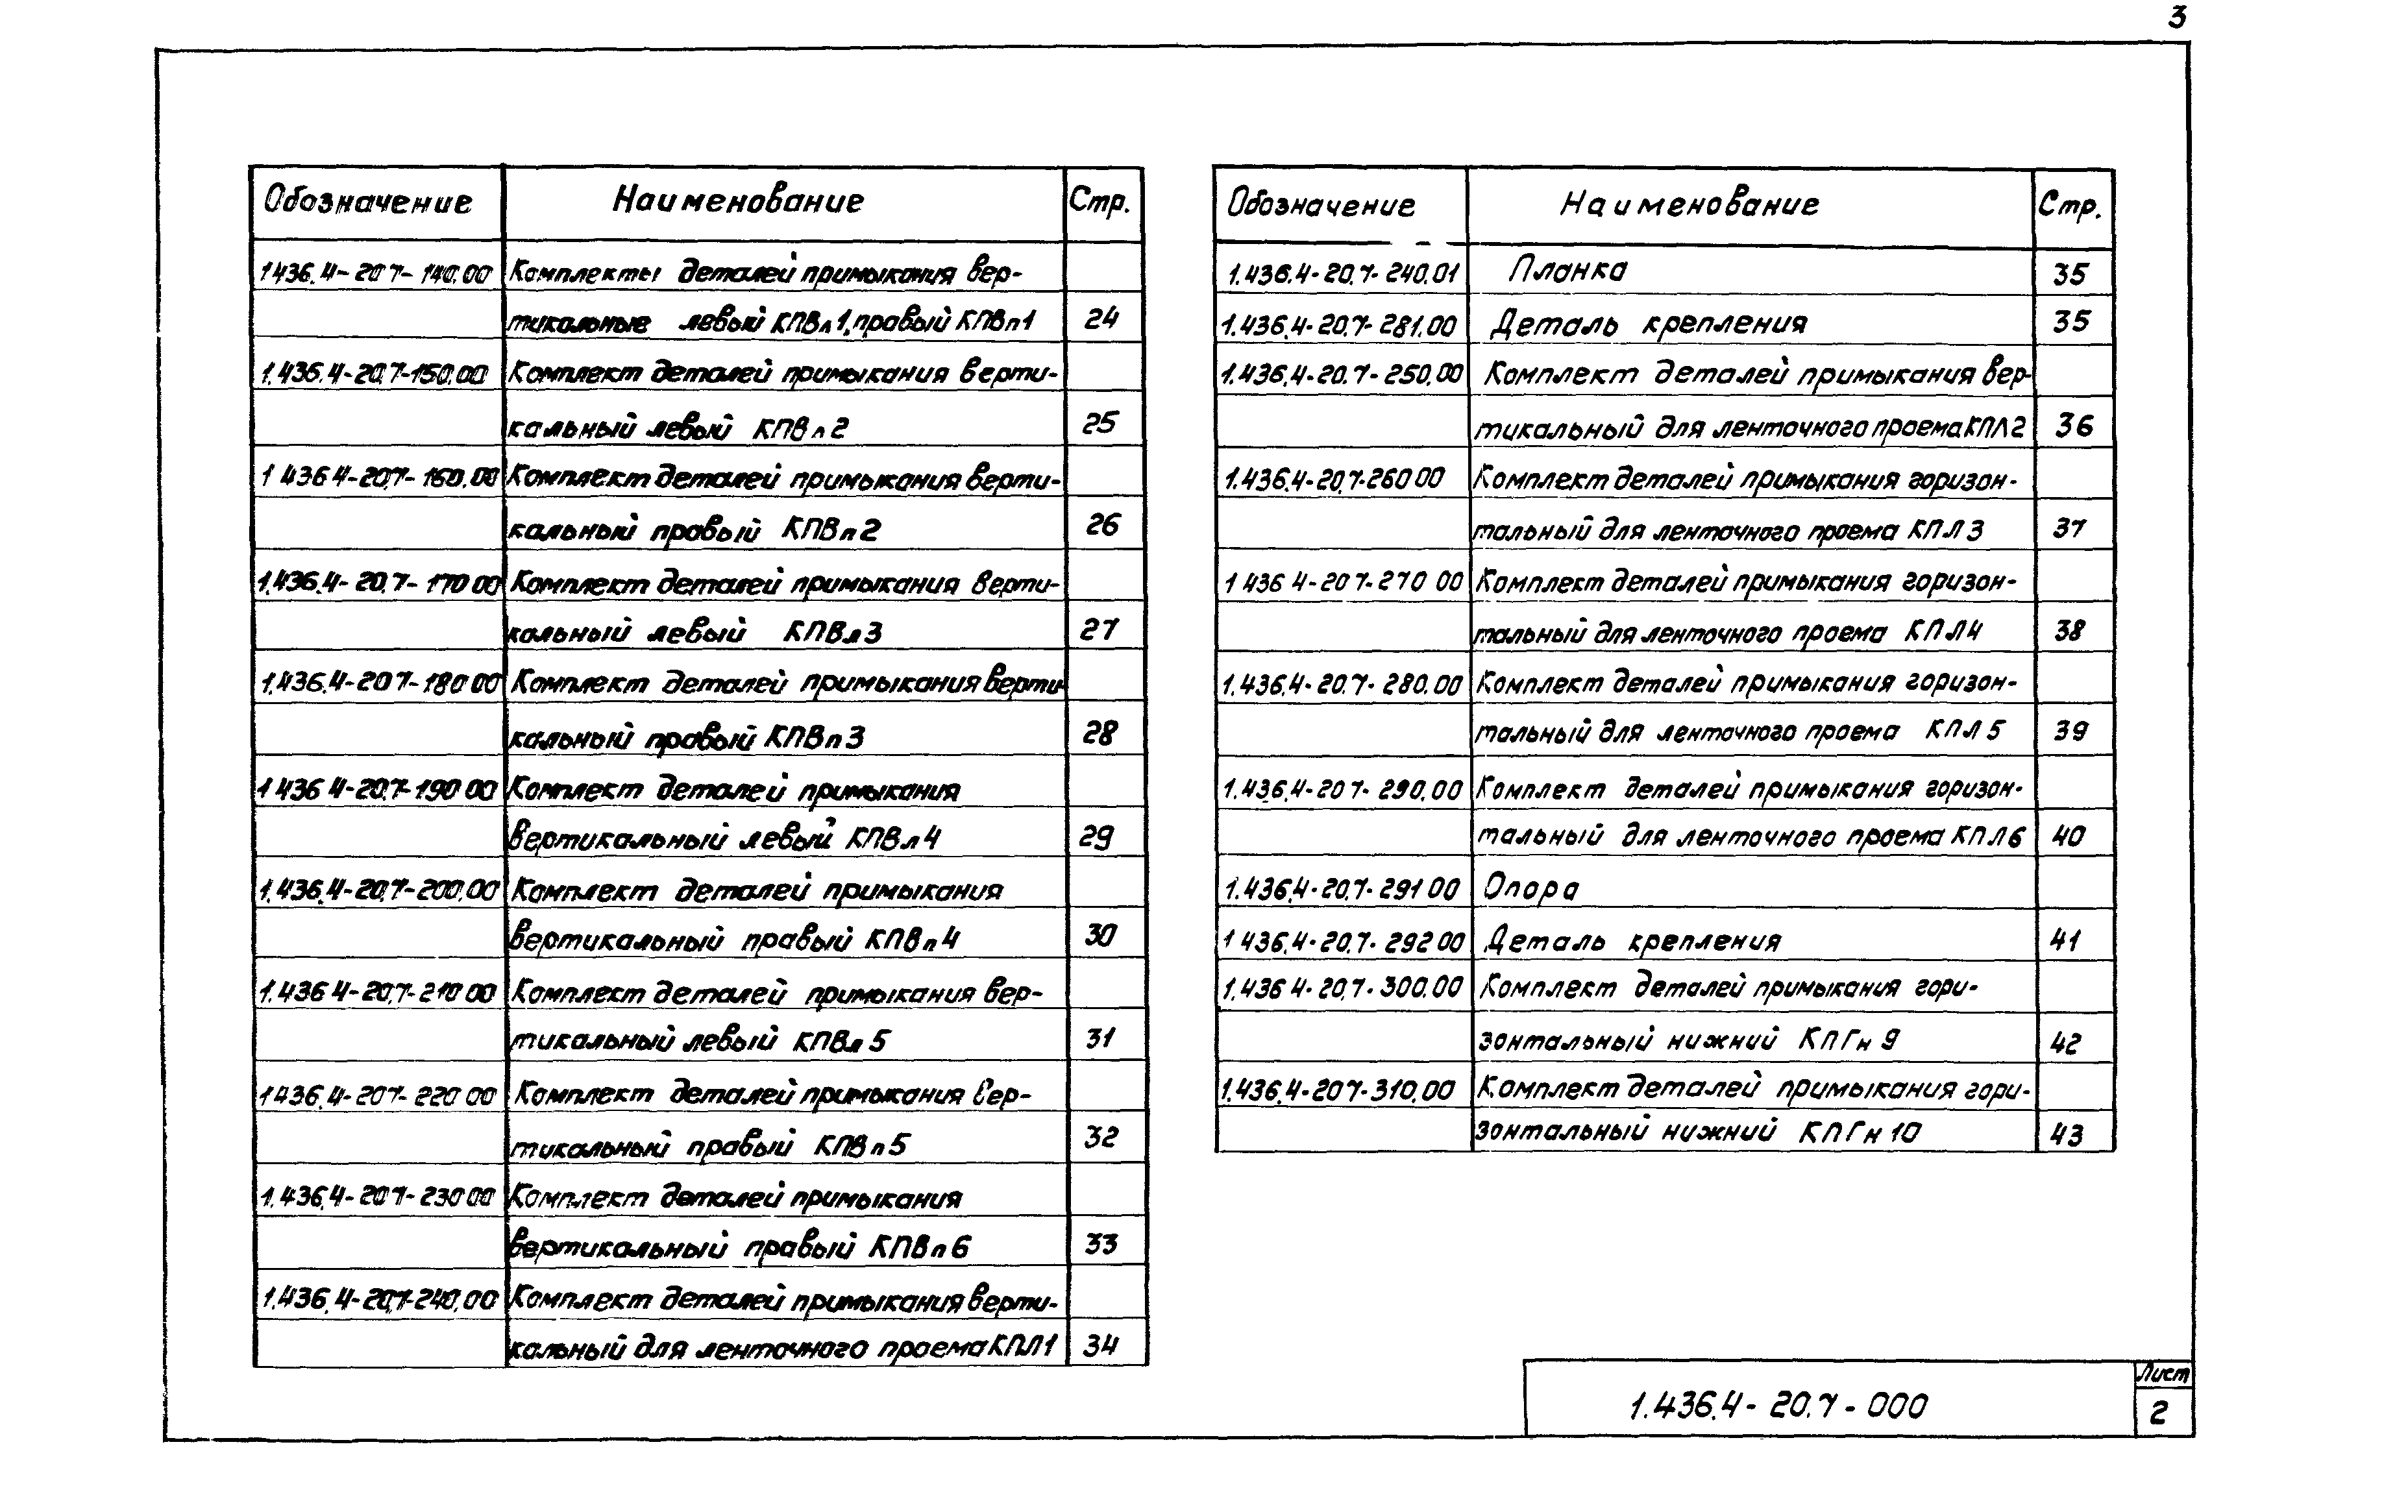 3
Обозначение Наименование Стр.
1.436.4-20.7-140.00 Комплекты деталей примыкания вер-
тикальные левый КПВл1, правый КПВп1 24
1.436.4-20.7-150.00 Комплект деталей примыкания верти-
кальный левый КПВл2 25
1.436.4-20.7-160.00 Комплект деталей примыкания верти-
кальный правый КПВп2 26
1.436.4-20.7-170.00 Комплект деталей примыкания верти-
кальный левый КПВл3 27
1.436.4-20.7-180.00 Комплект деталей примыкания верти
кальный правый КПВп3 28
1.436.4-20.7-190.00 Комплект деталей примыкания
вертикальный левый КПВл4 29
1.436.4-20.7-200.00 Комплект деталей примыкания
вертикальный правый КПВп4 30
1.436.4-20.7-210.00 Комплект деталей примыкания вер-
тикальный левый КПВл5 31
1.436.4-20.7-220.00 Комплект деталей примыкания вер-
тикальный правый КПВп5 32
1.436.4-20.7-230.00 Комплект деталей примыкания
вертикальный правый КПВп6 33
1.436.4-20.7-240.00 Комплект деталей примыкания верти-
кальный для ленточного проема КПЛ1 34
Обозначение Наименование Стр.
1.436.4-20.7-240.01 Планка 35
1.436.4-20.7-281.00 Деталь крепления 35
1.436.4-20.7-250.00 Комплект деталей примыкания вер-
тикальный для ленточного проема КПЛ2 36
1.436.4-20.7-260.00 Комплект деталей примыкания горизон-
тальный для ленточного проема КПЛ3 37
1.436.4-20.7-270.00 Комплект деталей примыкания горизон-
тальный для ленточного проема КПЛ4 38
1.436.4-20.7-280.00 Комплект деталей примыкания горизон-
тальный для ленточного проема КПЛ5 39
1.436.4-20.7-290.00 Комплект деталей примыкания горизон-
тальный для ленточного проема КПЛ6 40
1.436.4-20.7-291.00 Опора
1.436.4-20.7-292.00 Деталь крепления 41
1.436.4-20.7-300.00 Комплект деталей примыкания гори-
зонтальный нижний КПГн9 42
1.436.4-20.7-310.00 Комплект деталей примыкания гори-
зонтальный нижний КПГн10 43
1.436.4-20.7-000
Лист
2